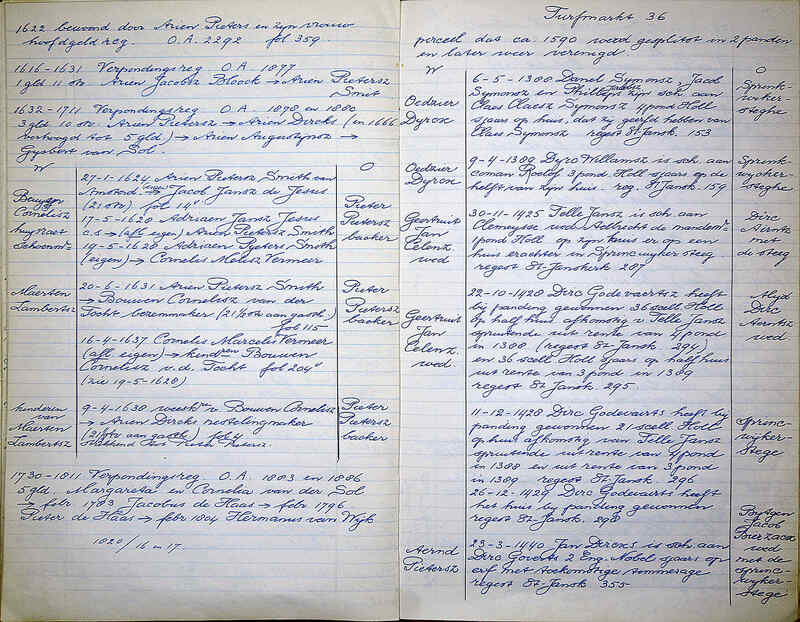 1622 bewoond door Arien Pieters en zijn vrouw
hoofdgeld reg. O.A. 2292 fol 359.
1616-1631 Verpondingsreg O.A. 1877
1 gld 11 stv Arien Jacobsz Bloock → Arien Pietersz
Smit
1632-1711 Verpondingsreg O.A. 1878 en 1880
3 gld 10 stv Arien Pietersz → Arien Dircks (in 1666
verhoogd tot 5 gld) → Arien Augustijnsz →
Gijsbert van Sol.
W
O
27-1-1624 Arien Pieters Smith van
Amstend → Jacob Jansz de Jesus
(21 stv) fol 14
17-5-1620 Adriaen Jansz Jesus
c.s → (afl eigen) Arien Pietersz Smith
19-5-1620 Adriaen Pieters Smith
(eigen) → Cornelis Meesz Vermeer
Cornelisz
huystaet
Schoenm
Pieter
Pietersz
backer
20-6-1631 Arien Pietersz Smith
→ Bouwen Cornelisz van der
Tocht bezemmaker (21½ stv aan gasth.)
fol 115
16-4-1637 Cornelis Marcelis Vermeer
(afl eigen) → kindren Bouwen
Cornelisz v.d. Tocht fol 204
(zie 19-5-1620)
Maerten
Lambertsz
Pieter
Pietersz
backer
9-4-1630 weeskr v. Bouwen Cornelisz
→ Arien Dircks nestelingmaker
(21½ stv aan gasth) fol 4
kinderen
van
Maerten
Lambertsz
Pieter
Pietersz
backer
1730-1811 Verpondingsreg O.A. 1883 en 1886
5 gld. Margareta en Cornelia van der Sol
→ febr 1783 Jacobus de Haas → febr 1796
Pieter de Haas → febr 1804 Hermanus van Wijk
1020/16 en 17.
Turfmarkt 36
perceel dat ca. 1590 werd gesplitst in 2 panden
en later weer verenigd.
W
O
6-5-1388 Daniel Symonsz, Jacob
Symonsz en Phillips zijn sch. aan
Claes Claesz Symonsz 4 pond Holl
sjaars op huis, dat zij geerft hebben van
Claes Symonsz regest St Jansk. 153
Oedzier
Dyrox
Sprenk-
wijker-
steghe
9-4-1389 Dyro Willamsz is sch. aan
coman Roelof 3 pond. Holl sjaars op de
helft van zijn huis. reg. St Jansk. 159
Oedzier
Dyrox
Sprenk-
wyker-
steghe
30-11-1425 Telle Jansz is sch. aan
Clemeynse wed Aelbrecht de mandenmr
1 pond Holl op zijn huis er op een
huis erachter in Sprincwijker steeg.
regest St-Janskerk 287
Geertruit
Jan
Eelenz.
wed
Dirc
Aerntsz
met
de steeg
22-10-1428 Dirc Godevaertsz heeft
bij panding gewonnen 36 scell Holl
op half huis afkomstig v. Telle Jansz
spruitende uit rente van 4 pond
in 1388 (regest St Jansk. 294)
en 36 scell. Holl sjaars op half huis
uit rente van 3 pond in 1389
regest St-Jansk 295.
Geertruit
Jan
Eelenz.
wed
Alyd
Dirc
Aerntsz
wed
11-12-1428 Dirc Godevaerts heeft bij
panding gewonnen 21 scell Holl
op huis afkomstig van Telle Jansz
spruitende uit rente van 4 pond
in 1388 en uit rente van 3 pond
in 1389 regest St-Jansk. 296
26-12-1429 Dirc Godevaerts heeft
het huis bij panding gewonnen
regest St-Jansk. 298
Sprinc-
wijker-
Stege
23-3-1440 Jan Dircxs is sch. aan
Dirc Goverts 2 Eng. Nobel sjaars op
erf met toekomstige timmerage
regest St-Jansk 355
Aernd
Pietersz
Jacob
wed
met de
sprinc-
wijker-
stege